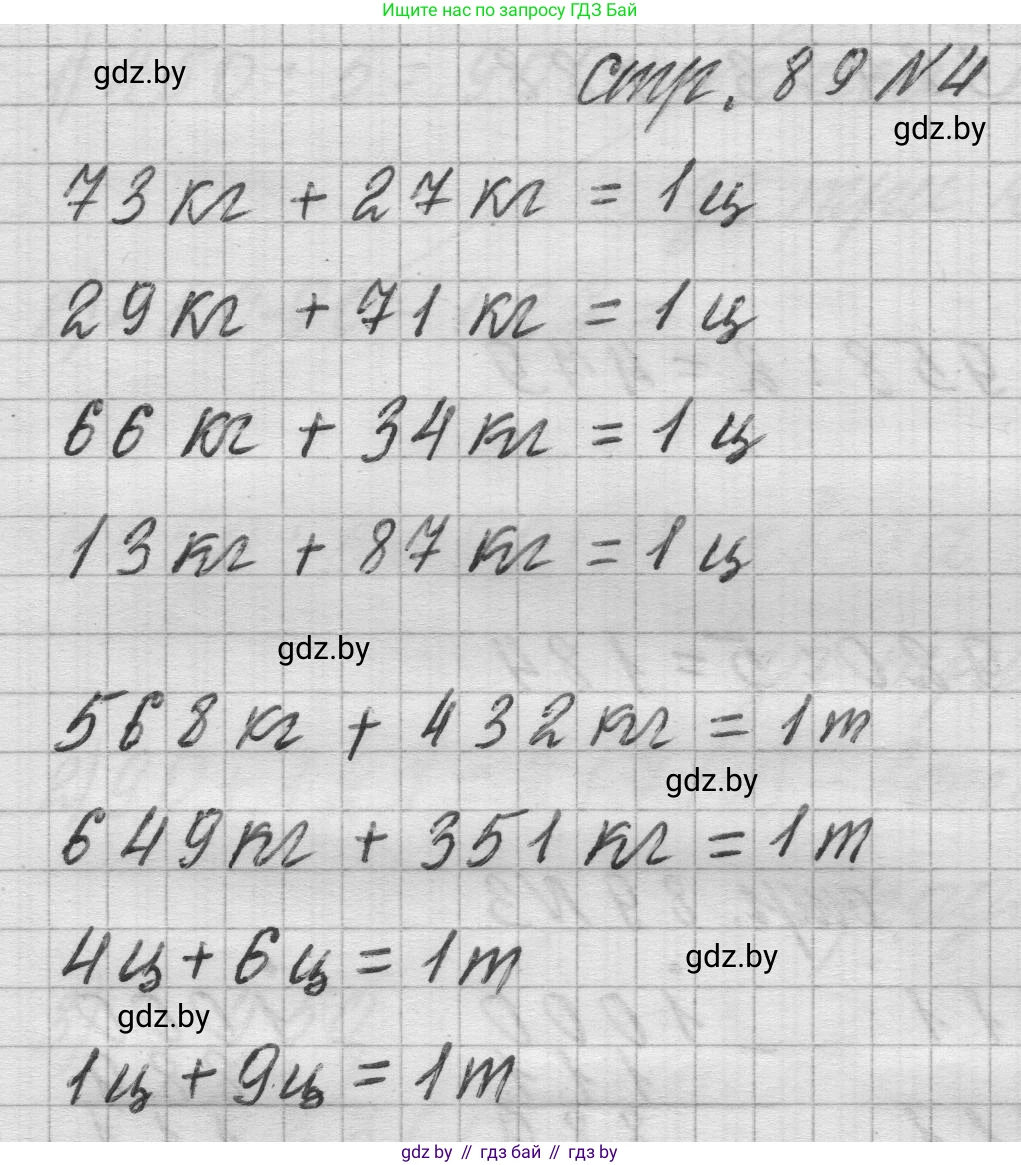 Ищите нас по запросу ГДЗ Бай
gdz.by
стр. 89 №4
gdz.by
73 кг + 27 кг = 1 ц
29 кг + 71 кг = 1 ц
66 кг + 34 кг = 1 ц
13 кг + 87 кг = 1 ц
gdz.by
568 кг + 432 кг = 1 т
gdz.by
649 кг + 351 кг = 1 т
4 ц + 6 ц = 1 т
gdz.by
gdz.by
1 ц + 9 ц = 1 т
gdz by // гдз бай // гдз by